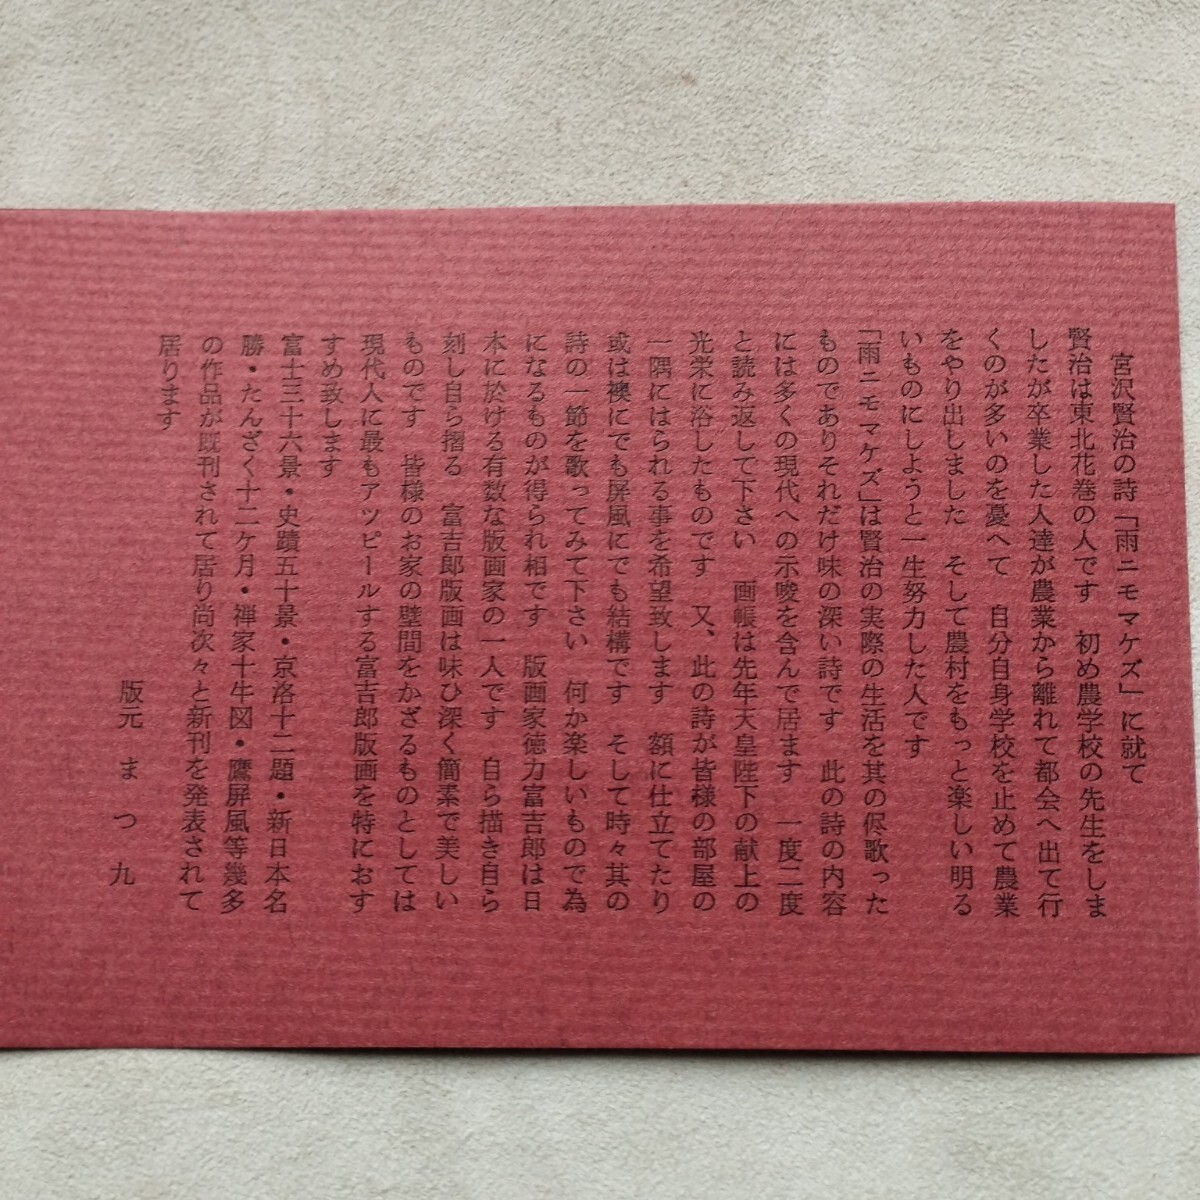 宮沢賢治の詩「雨ニモマケズ」に就て
賢治は東北花巻の人です　初め農学校の先生をしま
したが卒業した人達が農業から離れて都会へ出て行
くのが多いのを憂へて　自分自身学校を止めて農業
をやり出しました　そして農村をもっと楽しい明る
いものにしようと一生努力した人です
「雨ニモマケズ」は賢治の実際の生活を其の侭歌った
ものでありそれだけ味の深い詩です　此の詩の内容
には多くの現代への示唆を含んで居ます　一度二度
と読み返して下さい　画帳は先年天皇陛下の献上の
光栄に浴したものです　又、此の詩が皆様の部屋の
一隅にはられる事を希望致します　額に仕立てたり
或は襖にでも屏風にでも結構です　そして時々其の
詩の一節を歌ってみて下さい　何か楽しいもので為
になるものが得られ相です　版画家徳力富吉郎は日
本に於ける有数な版画家の一人です　自ら描き自ら
刻し自ら摺る　富吉郎版画は味ひ深く簡素で美しい
ものです　皆様のお家の壁間をかざるものとしては
現代人に最もアツピールする富吉郎版画を特におす
すめ致します
富士三十六景・史蹟五十景・京洛十二題・新日本名
勝・たんざく十二ケ月・禅家十牛図・鷹屏風等幾多
の作品が既刊されて居り尚次々と新刊を発表されて
居ります
版元　まつ九